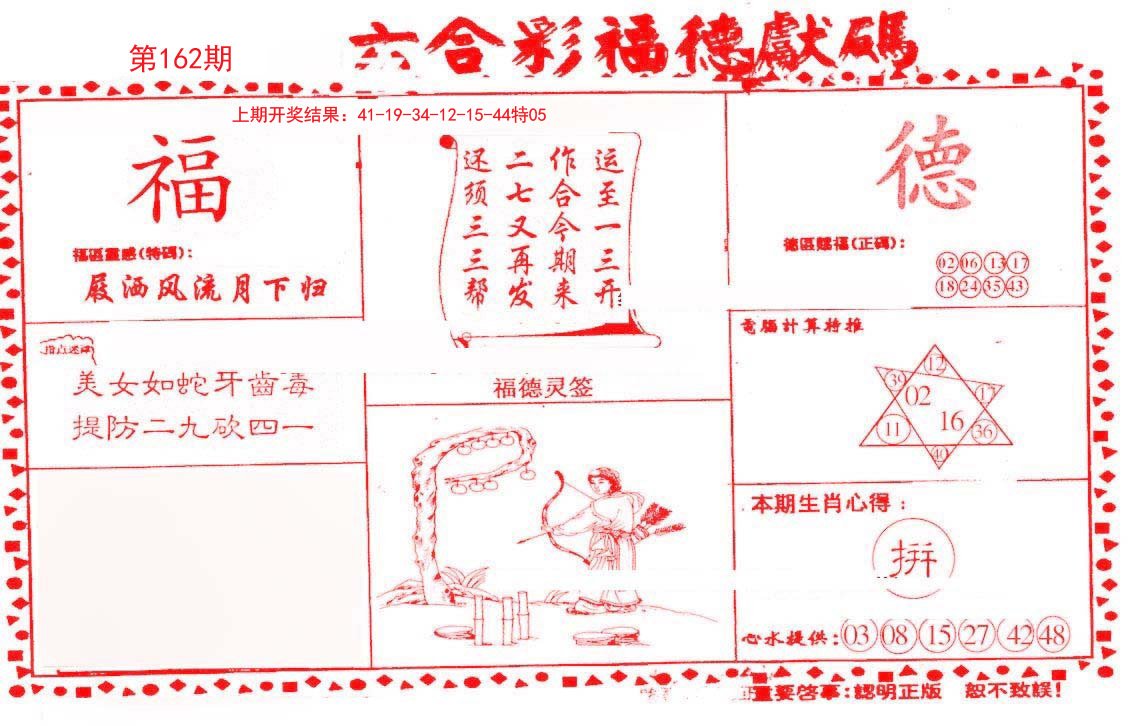 六合彩福德獻碼
第162期
上期开奖结果: 41-19-34-12-15-44特05
福
福區靈感(特碼):
屐洒风流月下归
指点迷津
美女如蛇牙齒毒
提防二九砍四一
运至一三开
作合今期来
二七又再发
还须三三帮
福德灵签
德
德區賜福(正碼):
02 06 13 17
18 24 35 43
電腦計算特推
12
39 02 17
11 16 36
40
本期生肖心得:
拼
心水提供: 03 08 15 27 42 48
重要啓事:認明正版 恕不致誤!